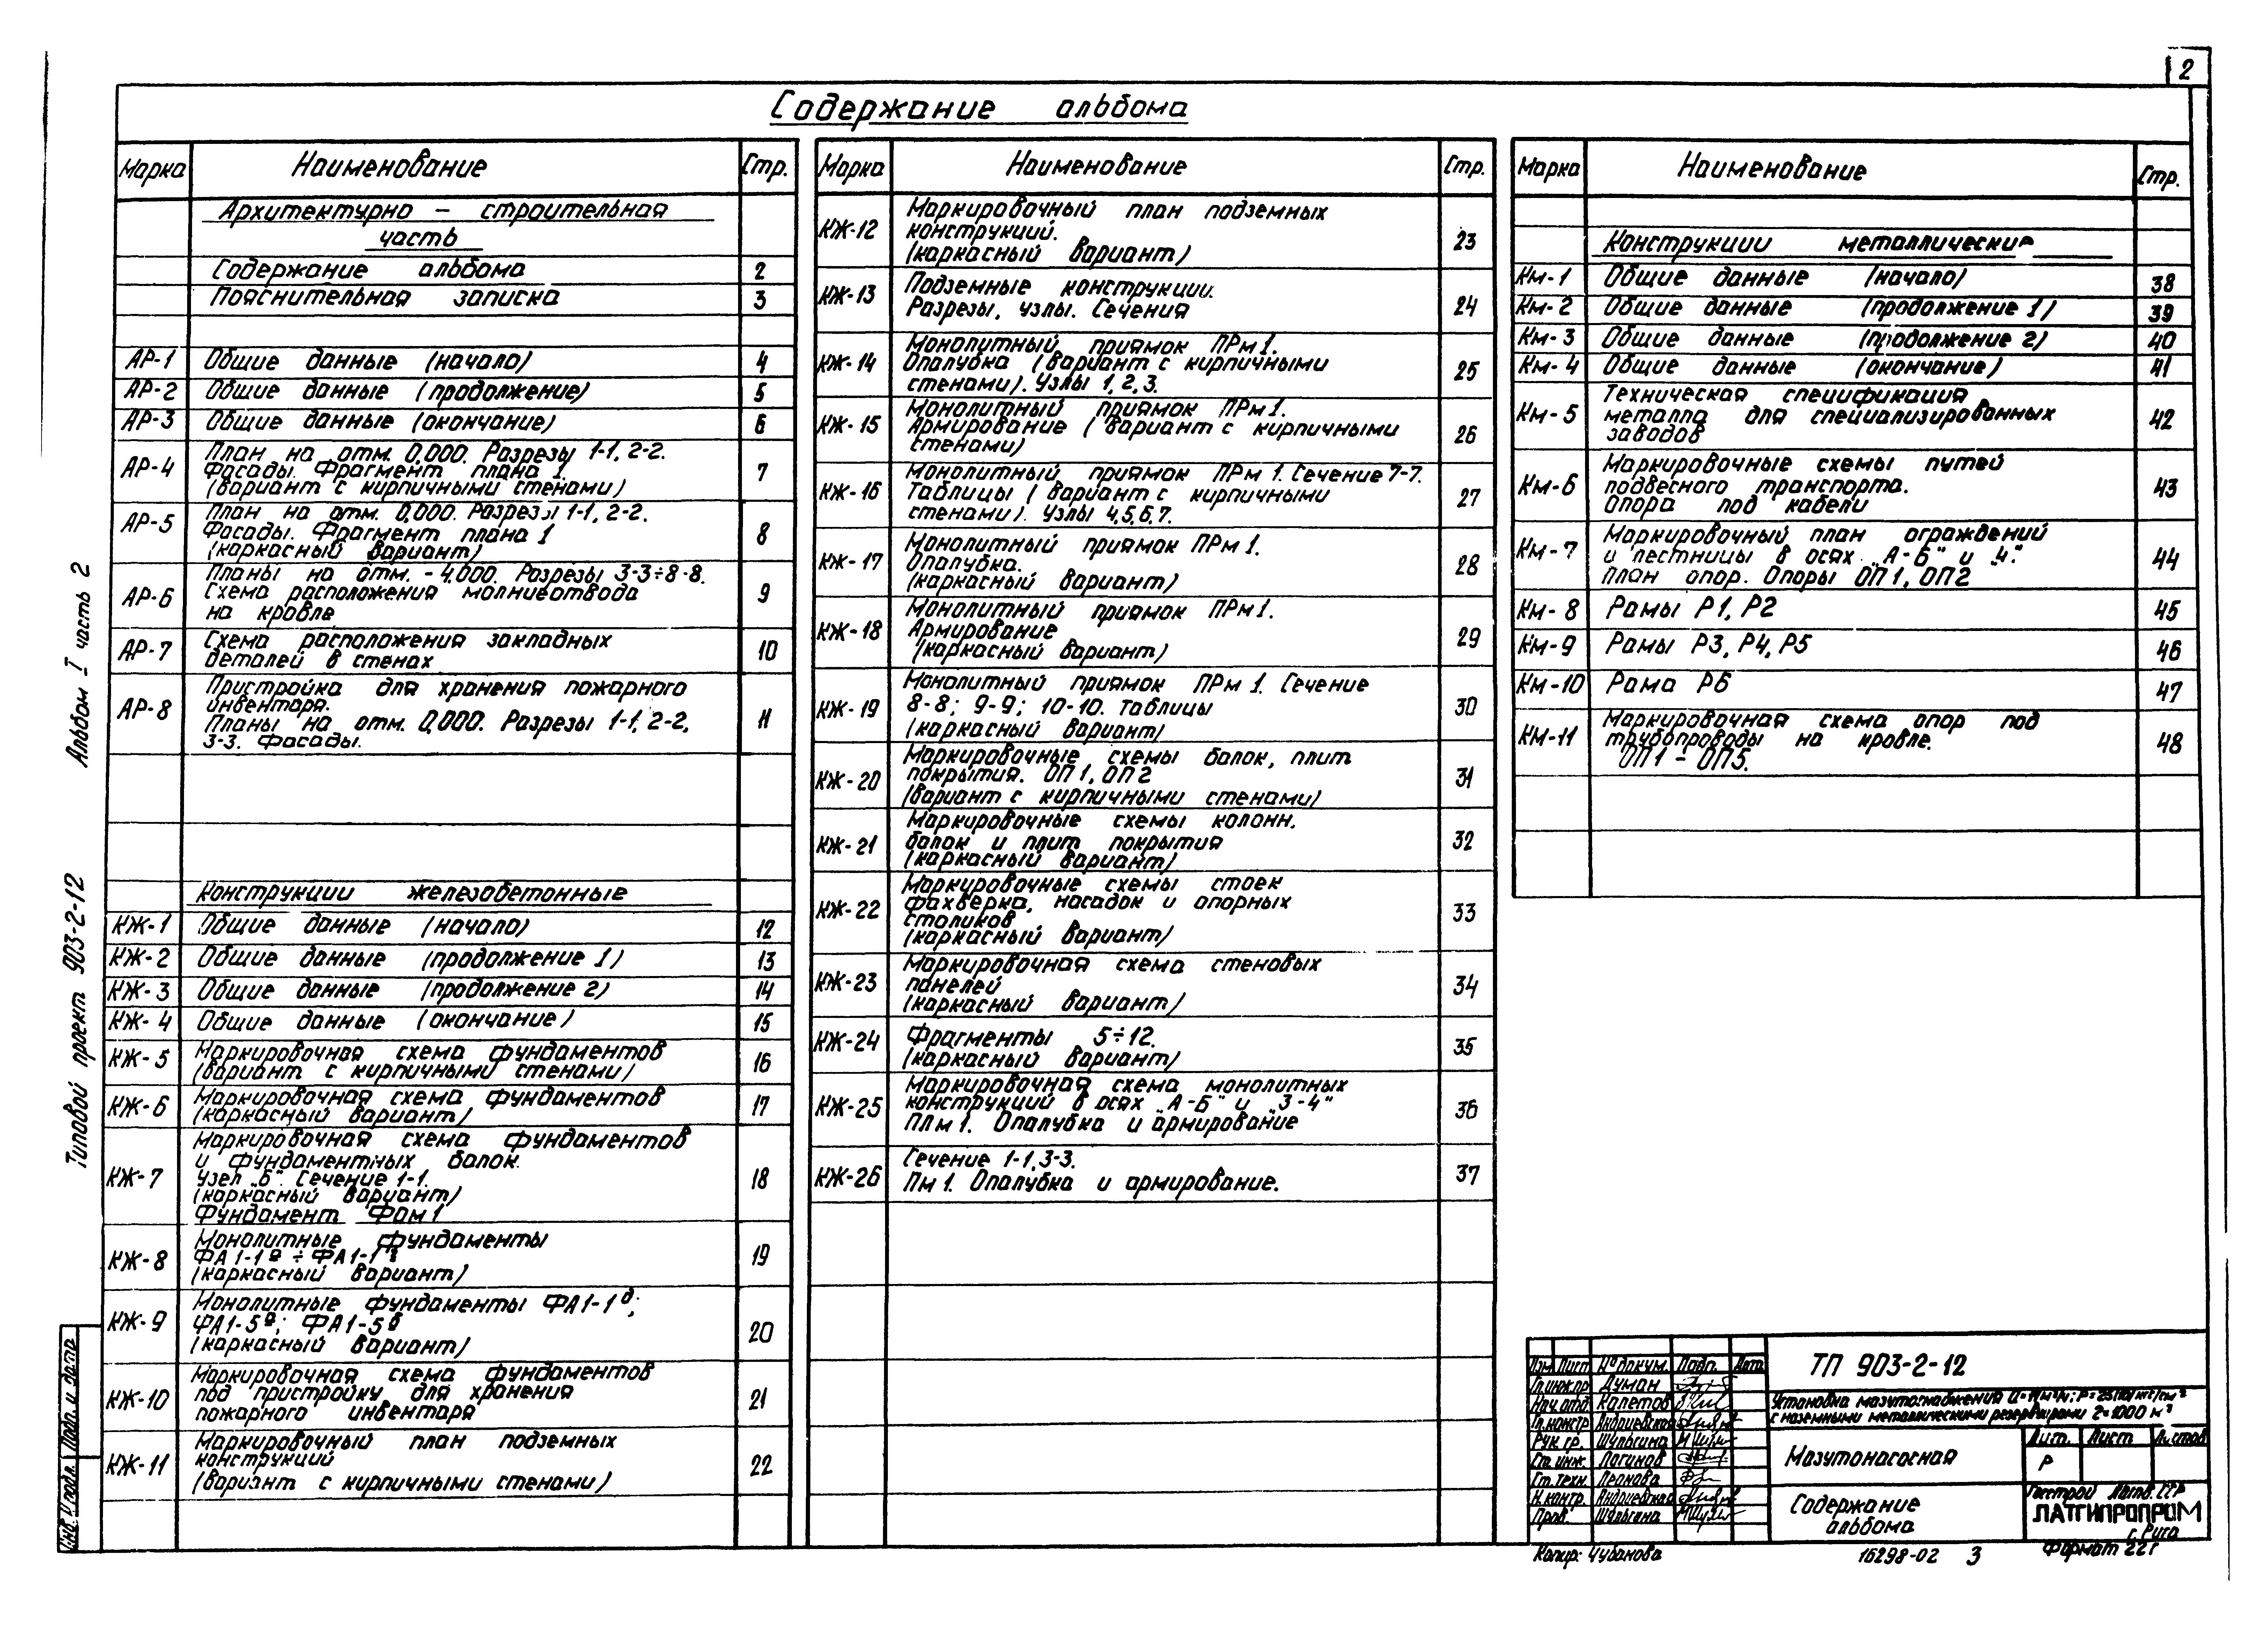 2
Содержание альбома
Марка Наименование Стр.
Архитектурно – строительная
часть
Содержание альбома 2
Пояснительная записка 3
АР-1 Общие данные (начало) 4
АР-2 Общие данные (продолжение) 5
АР-3 Общие данные (окончание) 6
АР-4 План на отм. 0,000. Разрезы 1-1, 2-2.
Фасады. Фрагмент плана 1.
(вариант с кирпичными стенами) 7
АР-5 План на отм. 0,000. Разрезы 1-1, 2-2.
Фасады. Фрагмент плана 1
(каркасный вариант) 8
АР-6 Планы на отм. -4.000. Разрезы 3-3÷8-8.
Схема расположения молниеотвода
на кровле 9
АР-7 Схема расположения закладных
деталей в стенах 10
АР-8 Пристройка для хранения пожарного
инвентаря.
Планы на отм. 0,000. Разрезы 1-1, 2-2,
3-3. Фасады. 11
Конструкции железобетонные
КЖ-1 Общие данные (начало) 12
КЖ-2 Общие данные (продолжение 1) 13
КЖ-3 Общие данные (продолжение 2) 14
КЖ-4 Общие данные (окончание) 15
КЖ-5 Маркировочная схема фундаментов
(вариант с кирпичными стенами) 16
КЖ-6 Маркировочная схема фундаментов
(каркасный вариант) 17
КЖ-7 Маркировочная схема фундаментов
и фундаментных балок.
Узел „Б“. Сечение 1-1.
(каркасный вариант)
Фундамент Фом 1 18
КЖ-8 Монолитные фундаменты
ФА1-1 ÷ ФА1-1
(каркасный вариант) 19
КЖ-9 Монолитные фундаменты ФА1-1д;
ФА1-5а; ФА1-5б
(каркасный вариант) 20
КЖ-10 Маркировочная схема фундаментов
под пристройку для хранения
пожарного инвентаря 21
КЖ-11 Маркировочный план подземных
конструкций
(вариант с кирпичными стенами) 22
Марка Наименование Стр.
КЖ-12 Маркировочный план подземных
конструкций.
(каркасный вариант) 23
КЖ-13 Подземные конструкции.
Разрезы, узлы. Сечения 24
КЖ-14 Монолитный приямок ПРм 1.
Опалубка (вариант с кирпичными
стенами). Узлы 1, 2, 3. 25
КЖ-15 Монолитный приямок ПРм 1.
Армирование (вариант с кирпичными
стенами) 26
КЖ-16 Монолитный приямок ПРм 1. Сечение 7-7.
Таблицы (вариант с кирпичными
стенами). Узлы 4,5,6,7. 27
КЖ-17 Монолитный приямок ПРм 1.
Опалубка.
(каркасный вариант) 28
КЖ-18 Монолитный приямок ПРм 1.
Армирование
(каркасный вариант) 29
КЖ-19 Монолитный приямок ПРм 1. Сечение
8-8; 9-9; 10-10. Таблицы
(каркасный вариант) 30
КЖ-20 Маркировочные схемы балок, плит
покрытия. ОП 1, ОП 2
(вариант с кирпичными стенами) 31
КЖ-21 Маркировочные схемы колонн,
балок и плит покрытия
(каркасный вариант) 32
КЖ-22 Маркировочные схемы стоек
фахверка, насадок и опорных
столиков
(каркасный вариант) 33
КЖ-23 Маркировочная схема стеновых
панелей
(каркасный вариант) 34
КЖ-24 Фрагменты 5÷12.
(каркасный вариант) 35
КЖ-25 Маркировочная схема монолитных
конструкций в осях „А-Б“ и „3-4“
ПЛм 1. Опалубка и армирование 36
КЖ-26 Сечение 1-1, 3-3.
Пм 1. Опалубка и армирование. 37
Марка Наименование Стр.
Конструкции металлические
Км-1 Общие данные (начало) 38
Км-2 Общие данные (продолжение 1) 39
Км-3 Общие данные (продолжение 2) 40
Км-4 Общие данные (окончание) 41
Км-5 Техническая спецификация
металла для специализированных
заводов 42
Км-6 Маркировочные схемы путей
подвесного транспорта.
Опора под кабели 43
Км-7 Маркировочный план ограждений
и лестницы в осях „А-Б“ и „4“.
План опор. Опоры ОП 1, ОП 2 44
Км-8 Рамы Р1, Р2 45
Км-9 Рамы Р3, Р4, Р5 46
Км-10 Рама Р6 47
Км-11 Маркировочная схема опор под
трубопроводы на кровле.
ОП 1 – ОП 5. 48
Типовой проект 903-2-12 Альбом I часть 2
Инв. № подл. Подп. и дата
Изм Лист № докум. Подп. Дата
Гл.инж.пр Думан
Нач. отд. Калетов
Гл.констр Андриевская
Рук. гр. Шульгина
Ст. инж. Логинов
Ст. техн. Леонова
Н. контр. Андриевская
Пров. Шульгина
ТП 903-2-12
Установка мазутоснабжения
с наземными металлическими резервуарами 2×1000 м³
Мазутонасосная
Лит. Лист Листов
Р
Содержание
альбома
Госстрой Латв. ССР
ЛАТГИПРОПРОМ
г. Рига
Копир: Чубанова 16298-02 3 Формат 22г